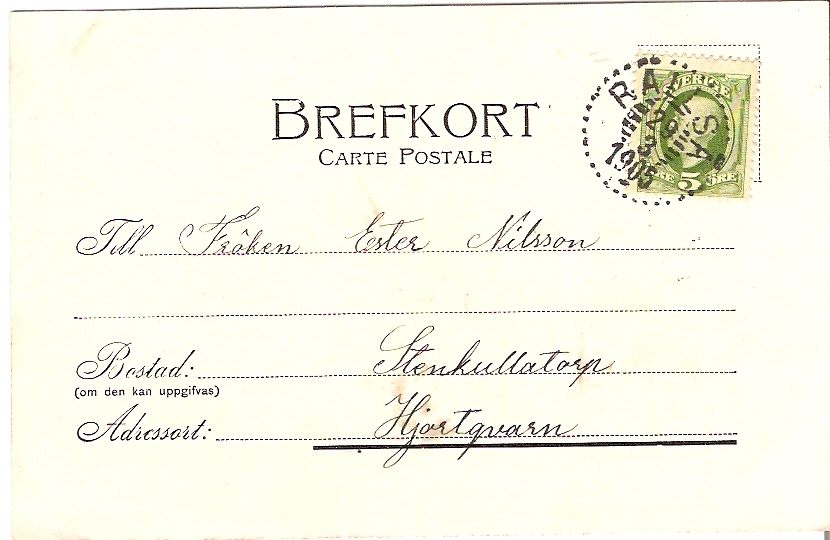 BREFKORT
CARTE POSTALE
SVERIGE
5 ÖRE
1905
Till Fröken Ester Nilsson
Bostad: Stenkullatorp
(om den kan uppgifvas)
Adressort: Hjortqvarn